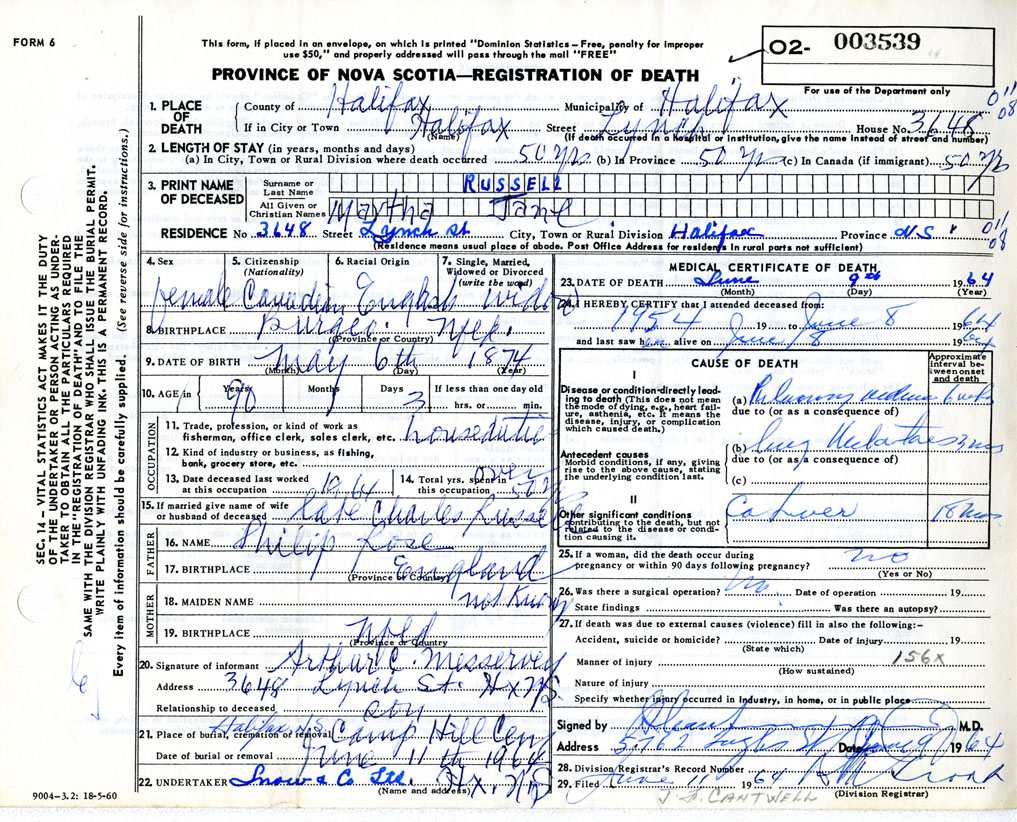 FORM 6
This form, if placed in an envelope, on which is printed "Dominion Statistics – Free, penalty for improper
use $50," and properly addressed will pass through the mail "FREE"
O2- 003539
PROVINCE OF NOVA SCOTIA—REGISTRATION OF DEATH
For use of the Department only
1. PLACE OF DEATH County of Halifax Municipality of Halifax
011 08
If in City or Town Halifax (Name) Street Lynch House No. 3648
(If death occurred in a hospital or institution, give the name instead of street and number)
2. LENGTH OF STAY (in years, months and days)
(a) In City, Town or Rural Division where death occurred 50 Yrs (b) In Province 50 Yrs (c) In Canada (if immigrant) 50 Yrs
3. PRINT NAME OF DECEASED Surname or Last Name RUSSELL
All Given or Christian Names Martha Jane
RESIDENCE No. 3648 Street Lynch St City, Town or Rural Division Halifax Province N.S
011 08
(Residence means usual place of abode. Post Office Address for residents in rural parts not sufficient)
4. Sex female
5. Citizenship (Nationality) Canadian
6. Racial Origin English
7. Single, Married, Widowed or Divorced (write the word) widow
8. BIRTHPLACE Burgeo. Nfld.
(Province or Country)
9. DATE OF BIRTH May 6th 1874
(Month) (Day) (Year)
10. AGE in Years 90 Months 1 Days 3 If less than one day old
hrs. or min.
OCCUPATION
11. Trade, profession, or kind of work as
fisherman, office clerk, sales clerk, etc. houseduties
12. Kind of industry or business, as fishing,
bank, grocery store, etc.
13. Date deceased last worked
at this occupation 1964
14. Total yrs. spent in
this occupation over 50 yrs
15. If married give name of wife
or husband of deceased Late Charles Russell
FATHER
16. NAME Philip Rose
17. BIRTHPLACE England
(Province or Country)
MOTHER
18. MAIDEN NAME not Known
19. BIRTHPLACE Nfld
(Province or Country)
20. Signature of informant Arthur C. Messervey
Address 3648 Lynch St. Hx N.S
Relationship to deceased son
21. Place of burial, cremation or removal Halifax N.S. Camp Hill Cem
Date of burial or removal June 11th 1964
22. UNDERTAKER Snow & Co Ltd. Hx, N.S
(Name and address)
9004–3.2: 18-5-60
MEDICAL CERTIFICATE OF DEATH
23. DATE OF DEATH June 9th 1964
(Month) (Day) (Year)
24. I HEREBY CERTIFY that I attended deceased from:
1954 19 to June 8 1964
and last saw her alive on June 8 1964
CAUSE OF DEATH
Approximate interval between onset and death
I
Disease or condition directly leading
to death (This does not mean
the mode of dying, e.g., heart failure,
asthenia, etc. It means the
disease, injury, or complication
which caused death.)
(a) Pulmonary oedema 6 wks
due to (or as a consequence of)
(b) Lung Metastases 3 mos
due to (or as a consequence of)
(c)
Antecedent causes
Morbid conditions, if any, giving
rise to the above cause, stating
the underlying condition last.
II
Other significant conditions
contributing to the death, but not
related to the disease or condition
causing it.
Ca Liver 18 mos
25. If a woman, did the death occur during
pregnancy or within 90 days following pregnancy? no
(Yes or No)
26. Was there a surgical operation? no Date of operation 19
State findings Was there an autopsy?
27. If death was due to external causes (violence) fill in also the following:–
Accident, suicide or homicide? Date of injury 19
(State which)
Manner of injury 156X
(How sustained)
Nature of injury
Specify whether injury occurred in industry, in home, or in public place
Signed by M.D.
Address St Date June 9 1964
28. Division Registrar's Record Number
29. Filed June 11 1964
(Division Registrar)
J A CANTWELL
SEC. 14—VITAL STATISTICS ACT MAKES IT THE DUTY
OF THE UNDERTAKER OR PERSON ACTING AS UNDERTAKER
TO OBTAIN ALL THE PARTICULARS REQUIRED
IN THE "REGISTRATION OF DEATH" AND TO FILE THE
SAME WITH THE DIVISION REGISTRAR WHO SHALL ISSUE THE BURIAL PERMIT.
WRITE PLAINLY WITH UNFADING INK. THIS IS A PERMANENT RECORD.
Every item of information should be carefully supplied. (See reverse side for instructions.)